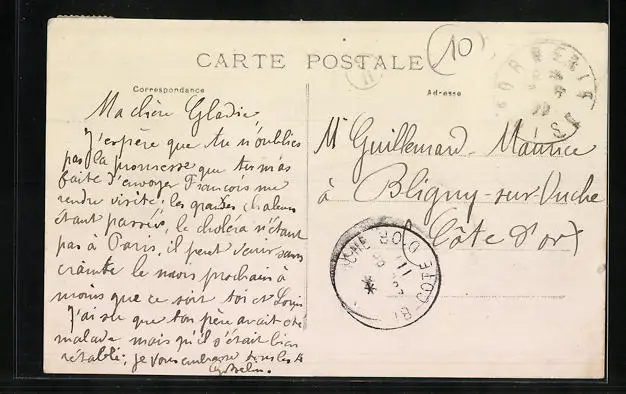 CARTE POSTALE
10
Correspondance
Adresse
Ma chère Gladie,
J'espère que tu n'oublies
pas la promesse que tu m'as
faite d'envoyer François me
rendre visite, les grandes chaleurs
étant passées, le choléra n'étant
pas à Paris, il peut venir sans
crainte le mois prochain à
moins que ce soit toi et Louis
J'ai su que ton père avait été
malade mais qu'il s'était bien
rétabli, je vous embrasse tous les 4
Mr Guillemard Maurice
à Bligny-sur-Ouche
Côte d'or
COTE D'OR